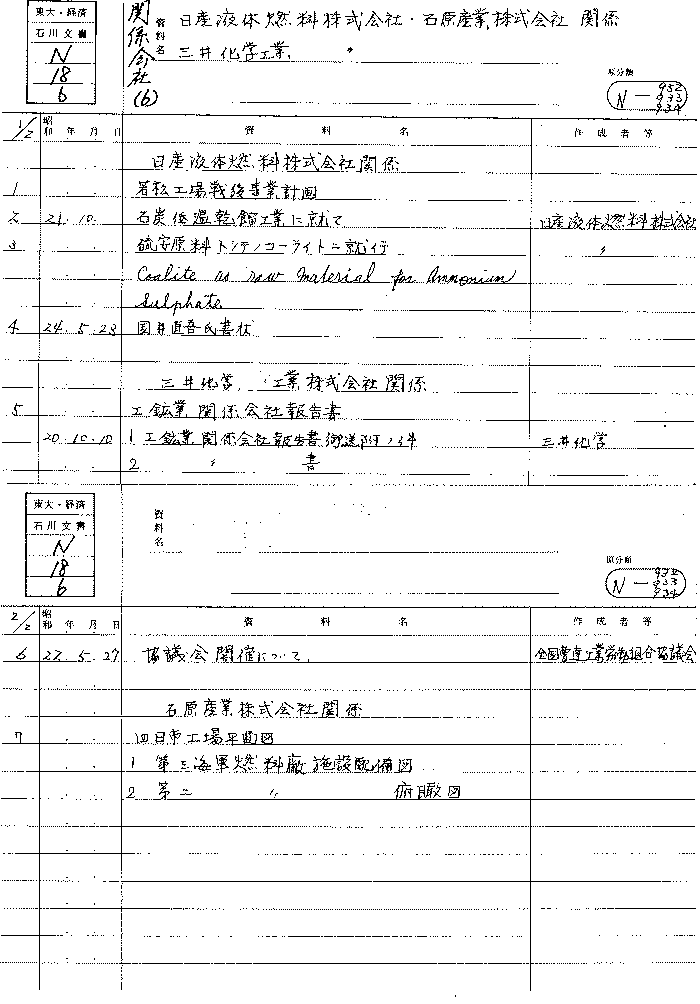 東大・経済
石川文書
N
18
6
関係会社(6)
資料名
日産液体燃料株式会社・石原産業株式会社 関係
三井化学工業 〃
原分類
N—932
933
934
1/2 昭和 年 月 日 資料名 作成者等
日産液体燃料株式会社関係
1 若松工場戦後専業計画
2 21.10. 石炭低温乾餾工業に就て 日産液体燃料株式会社
3 硫安原料トシテノコーライトニ就イテ 〃
Coalite as raw material for Ammonium
Sulphate
4 24.5.23 国井直吾氏書状
三井化学工業株式会社関係
5 工鉱業関係会社報告書
20.10.10 1 工鉱業関係会社報告書御送附ノ件 三井化学
2 〃 書
東大・経済
石川文書
N
18
6
資料名
原分類
N—932
933
934
2/2 昭和 年 月 日 資料名 作成者等
6 22.5.27 協議会開催について 全国曹達工業労働組合協議会
石原産業株式会社関係
7 四日市工場平面図
1 第二海軍燃料廠施設配備図
2 第二 〃 俯瞰図